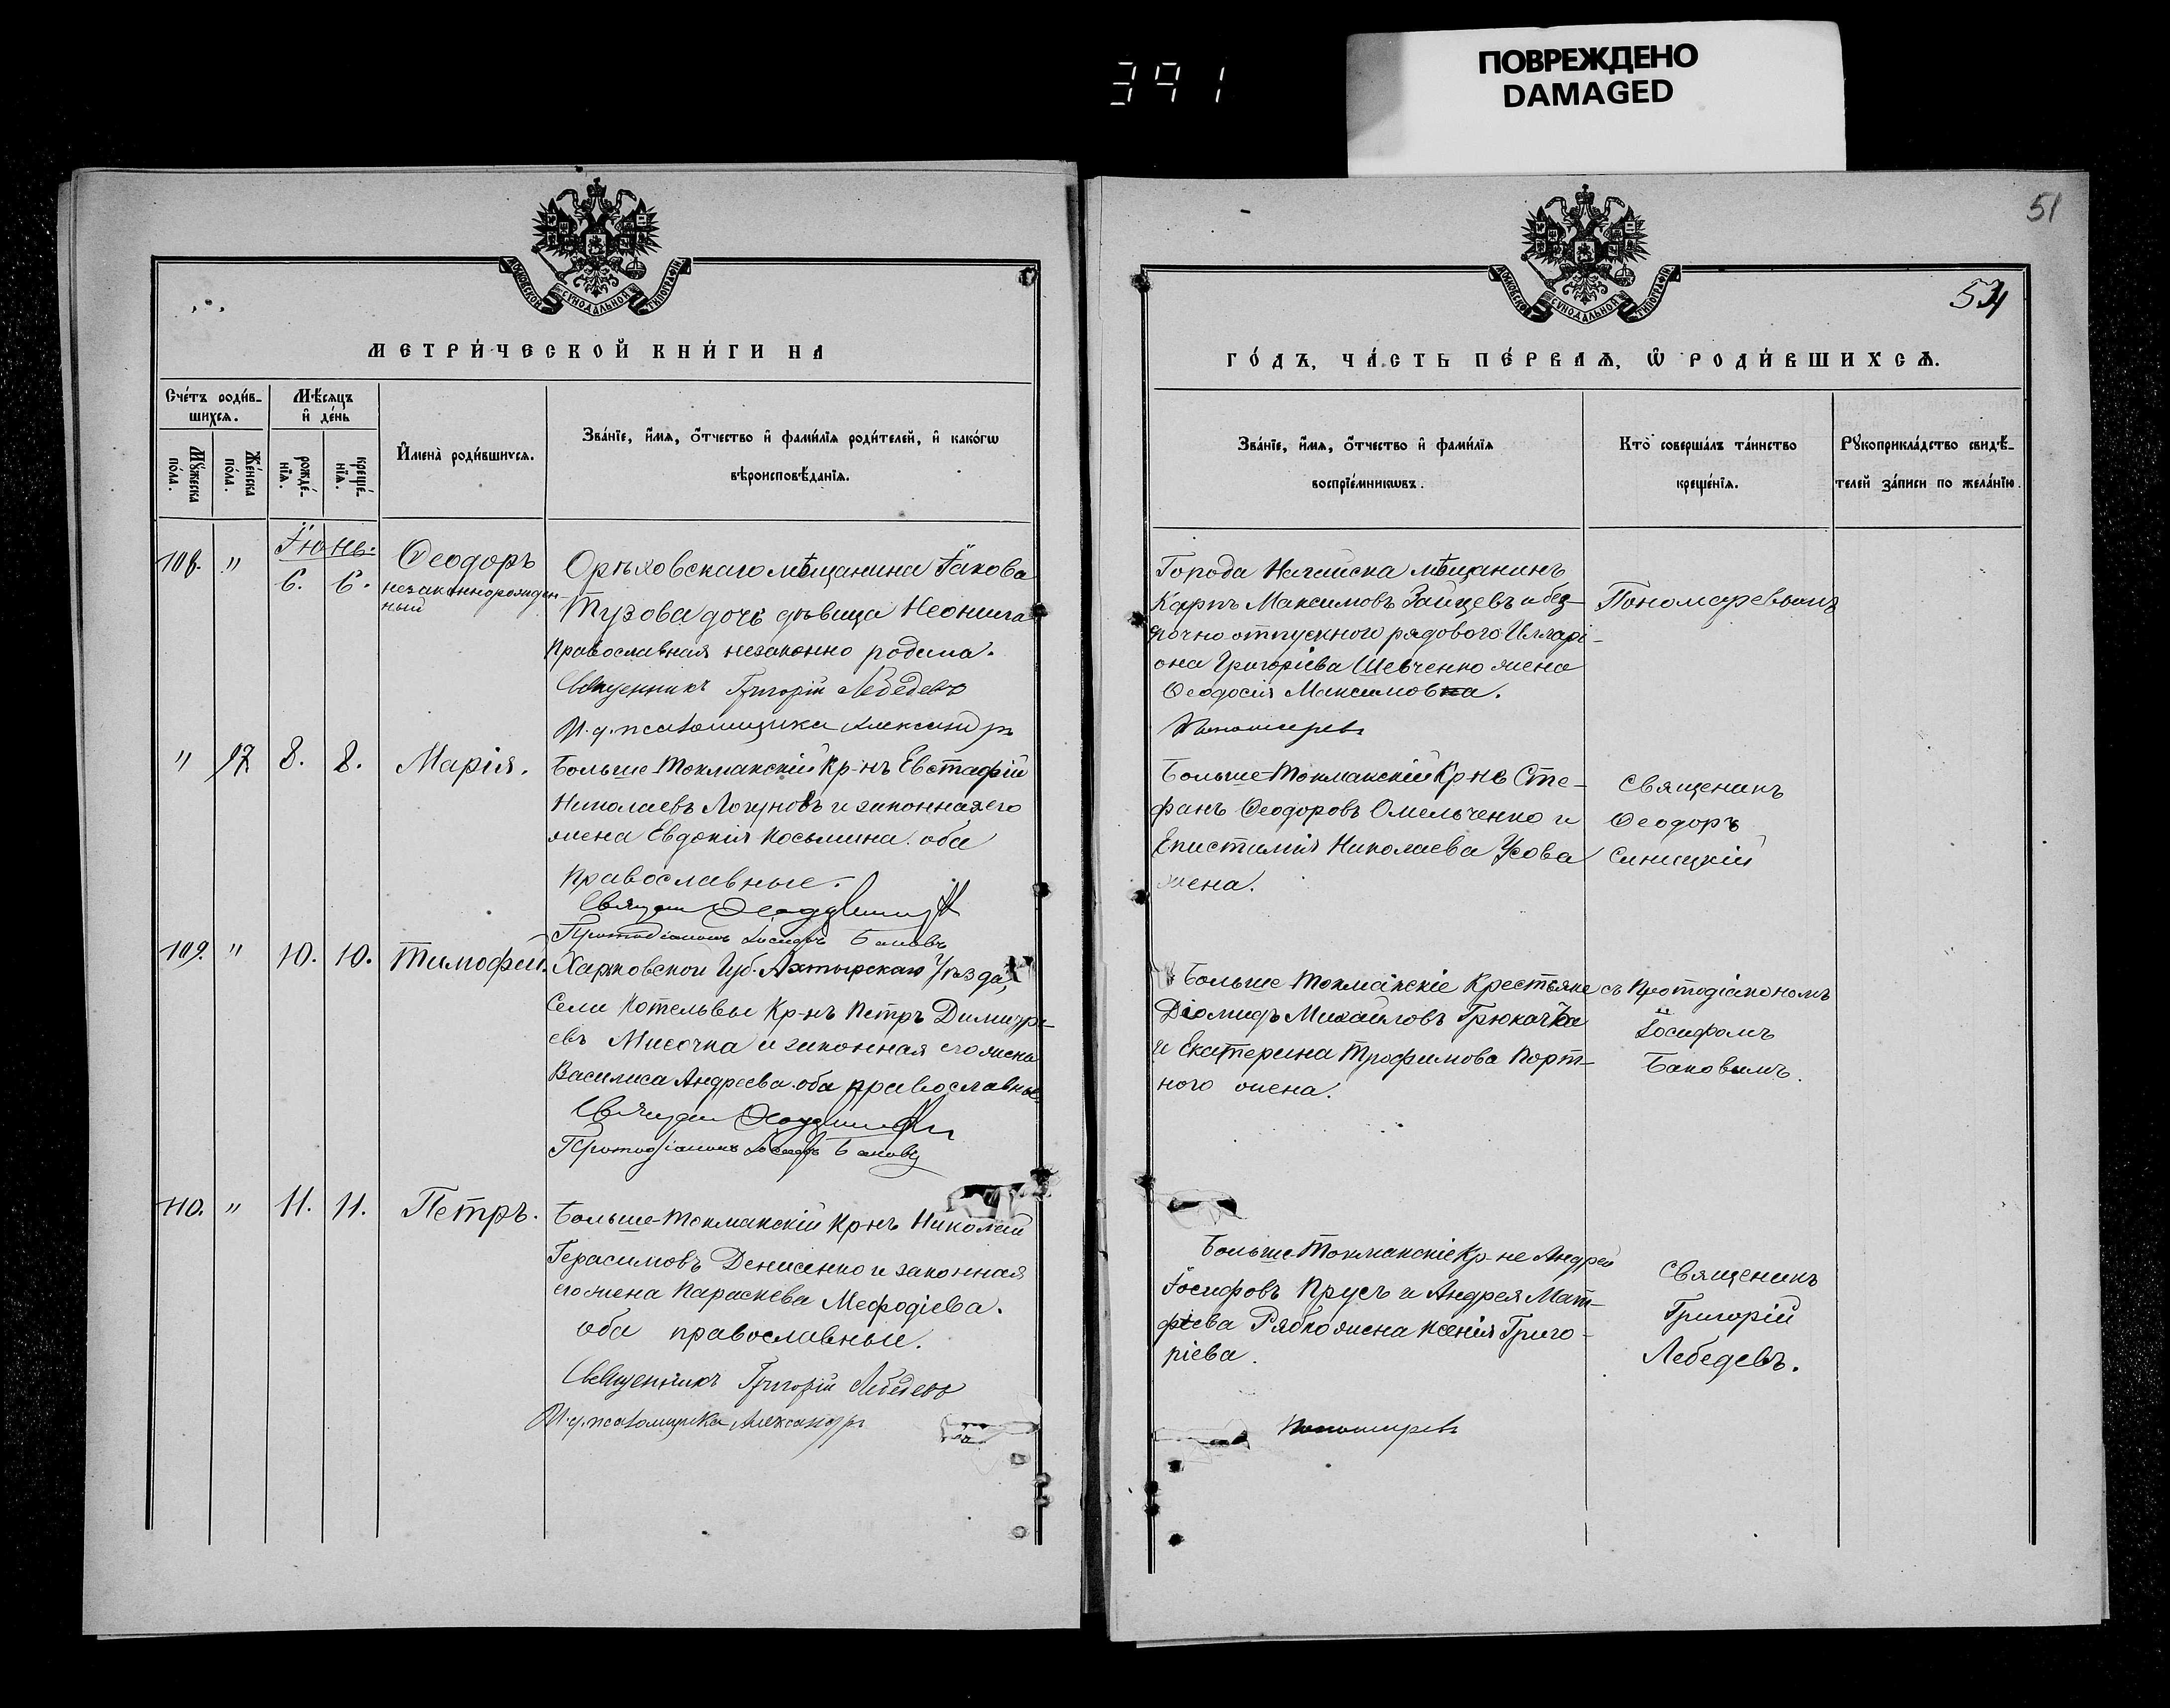 391
ПОВРЕЖДЕНО
DAMAGED
МОСКОВСКОЙ СѴНОДАЛЬНОЙ ТИПОГРАФІИ
МЕТРИ́ЧЕСКОЙ КНИ́ГИ НА
Сче́тъ роди́в-
шихсѧ.
Мѣ́сѧцъ
и҆ де́нь
Мꙋ́жеска
по́ла.
Же́нска
по́ла.
рожде́-
нїѧ.
креще́-
нїѧ.
И҆мена̀ роди́вшихсѧ.
Зва́нїе, и҆́мѧ, ѻ҆́тчество и҆ фами́лїѧ роди́телей, и҆ како́гѡ
вѣроисповѣ́данїѧ.
Іюнь.
108. " 6. 6.
Ѳеодоръ
незаконнорожден-
ный
Орѣховскаго мѣщанина Іакова
Тузова дочь дѣвица Неонила
православная незаконно родила.
Священникъ Григорій Лебедевъ
И. д. псаломщика Александръ
" 97 8. 8. Марія.
Больше-Токмакскій Кр-нъ Евстафій
Николаевъ Логуновъ и законная его
жена Евдокія Косьмина. оба
православные.
Протодіаконъ Іосифъ Баковъ
109. " 10. 10. Тимофей.
Харьковской Губ. Ахтырскаго Уѣзда,
Села Котельвы Кр-нъ Петръ Димитрі-
евъ Мисочка и законная его жена
Василиса Андреева. оба православные.
Протодіаконъ Іосифъ Баковъ
110. " 11. 11. Петръ.
Больше-Токмакскій Кр-нъ Николай
Герасимовъ Денисенко и законная
его жена Параскева Мефодіева.
оба православные.
Священникъ Григорій Лебедевъ
И. д. псаломщика Александръ
51
МОСКОВСКОЙ СѴНОДАЛЬНОЙ ТИПОГРАФІИ
ГО́ДЪ, ЧА́СТЬ ПЕ́РВАѦ, Ѽ РОДИ́ВШИХСѦ.
Зва́нїе, и҆́мѧ, ѻ҆́тчество и҆ фами́лїѧ
воспрїе́мникѡвъ.
Кто̀ соверша́лъ та́инство
креще́нїѧ.
Рꙋкоприкла́дство свидѣ́-
телей за́писи по жела́нїю.
Города Ногайска мѣщанинъ
Карпъ Максимовъ Зайцевъ и без-
срочно отпускного рядового Илларі-
она Григоріева Шевченко жена
Ѳеодосія Максимовна.
Пономаревъ
Больше-Токмакскій Кр-нъ Сте-
фанъ Ѳеодоровъ Омельченко и
Епистимія Николаева Усова
жена.
Священикъ
Ѳеодоръ
Синицкій
Больше-Токмакскіе Крестьяне
Діомидъ Михайловъ Грюкачка
и Екатерина Трофимова Порт-
ного жена.
съ Протодіакономъ
Іосифомъ
Баковымъ.
Больше-Токмакскіе Кр-не Андрей
Іосифовъ Прусъ и Андрея Мат-
фіева Рябко жена Ксенія Григо-
ріева.
Пономаревъ
Священикъ
Григорій
Лебедевъ.